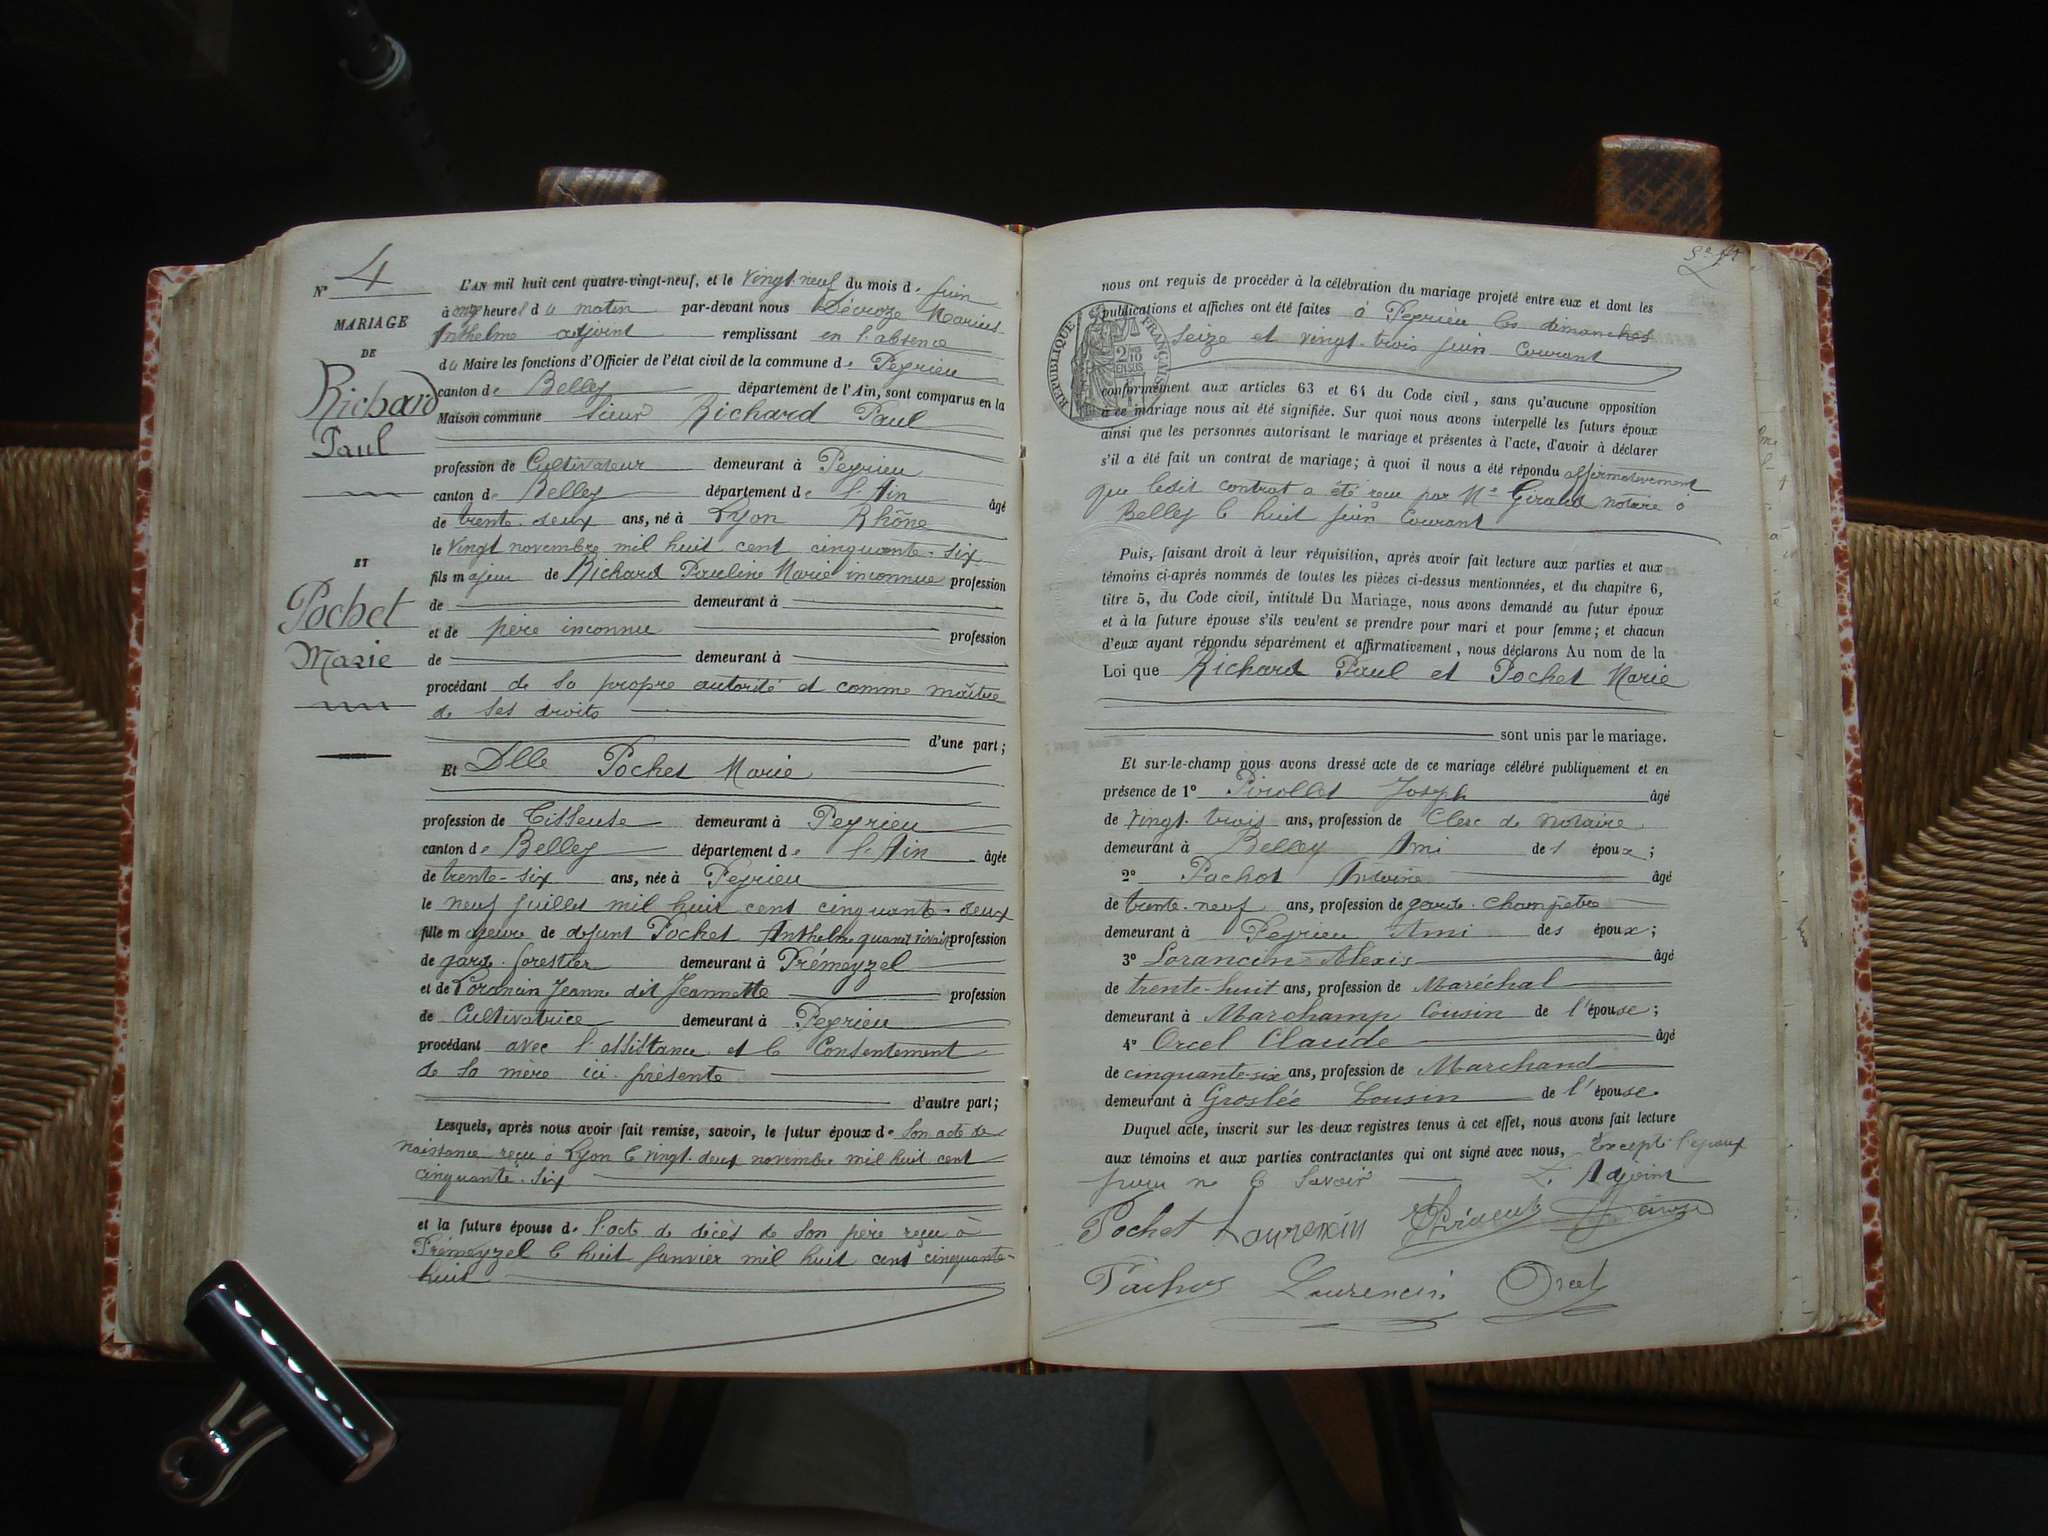 N° 4
MARIAGE
DE
Richard
Paul
ET
Pochet
Marie
L'AN mil huit cent quatre-vingt-neuf, et le vingt-neuf du mois de Juin
à onze heures du matin par-devant nous Décroze Marius
Anthelme adjoint remplissant en l'absence
du Maire les fonctions d'Officier de l'état civil de la commune de Peyrieu
canton de Belley département de l'Ain, sont comparus en la
Maison commune Sieur Richard Paul
profession de Cultivateur demeurant à Peyrieu
canton de Belley département de l'Ain âgé
de trente-deux ans, né à Lyon Rhône
le vingt novembre mil huit cent cinquante-six
fils majeur de Richard Pauline Marie inconnue profession
de demeurant à
et de père inconnu profession
de demeurant à
procédant de sa propre autorité et comme maître
de ses droits
d'une part;
Et Dlle Pochet Marie
profession de Tisseuse demeurant à Peyrieu
canton de Belley département de l'Ain âgée
de trente-six ans, née à Peyrieu
le neuf juillet mil huit cent cinquante-deux
fille majeure de défunt Pochet Anthelme quand vivait profession
de garde-forestier demeurant à Prémeyzel
et de Lorancin Jeanne dit Jeannette profession
de Cultivatrice demeurant à Peyrieu
procédant avec l'assistance et le Consentement
de sa mère ici présente
d'autre part;
Lesquels, après nous avoir fait remise, savoir, le futur époux de son acte de
naissance reçu à Lyon le vingt-deux novembre mil huit cent
cinquante-six
et la future épouse de l'acte de décès de son père reçu à
Prémeyzel le huit Janvier mil huit cent cinquante-
huit
nous ont requis de procéder à la célébration du mariage projeté entre eux et dont les
publications et affiches ont été faites à Peyrieu les dimanches
seize et vingt-trois juin courant
RÉPUBLIQUE FRANÇAISE
2/10 EN SUS
conformément aux articles 63 et 64 du Code civil, sans qu'aucune opposition
à ce mariage nous ait été signifiée. Sur quoi nous avons interpellé les futurs époux
ainsi que les personnes autorisant le mariage et présentes à l'acte, d'avoir à déclarer
s'il a été fait un contrat de mariage; à quoi il nous a été répondu affirmativement
que ledit contrat a été reçu par Me Giraud notaire à
Belley le huit juin courant
Puis, faisant droit à leur réquisition, après avoir fait lecture aux parties et aux
témoins ci-après nommés de toutes les pièces ci-dessus mentionnées, et du chapitre 6,
titre 5, du Code civil, intitulé Du Mariage, nous avons demandé au futur époux
et à la future épouse s'ils veulent se prendre pour mari et pour femme; et chacun
d'eux ayant répondu séparément et affirmativement, nous déclarons Au nom de la
Loi que Richard Paul et Pochet Marie
sont unis par le mariage.
Et sur-le-champ nous avons dressé acte de ce mariage célébré publiquement et en
présence de 1° Pirollet Joseph âgé
de vingt-trois ans, profession de Clerc de Notaire
demeurant à Belley Ami des époux;
2° Pachot Antoine âgé
de trente-neuf ans, profession de garde-champêtre
demeurant à Peyrieu Ami des époux;
3° Lorancin Alexis âgé
de trente-huit ans, profession de Maréchal
demeurant à Marchamp Cousin de l'épouse;
4° Orcel Claude âgé
de cinquante-six ans, profession de Marchand
demeurant à Groslée Cousin de l'épouse
Duquel acte, inscrit sur les deux registres tenus à cet effet, nous avons fait lecture
aux témoins et aux parties contractantes qui ont signé avec nous, Excepté l'époux
pour ne le savoir L'Adjoint
Pochet Laurencin
Laurencin Orcel